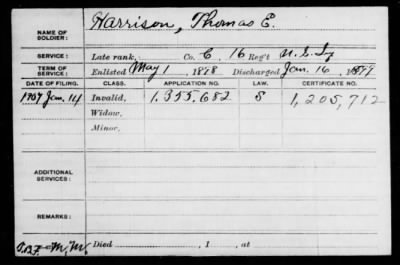 Harrison, Thomas E.
NAME OF
SOLDIER:
SERVICE:
Late rank, Co. C, 16 Reg't U.S. Inf
TERM OF
SERVICE:
Enlisted May 1, 1898 Discharged Jan. 16, 1899
DATE OF FILING. CLASS. APPLICATION NO. LAW. CERTIFICATE NO.
1907 Jan. 14 Invalid, 1,355,682 S 1,205,712
Widow,
Minor,
ADDITIONAL
SERVICES:
REMARKS:
Died , 1 , at